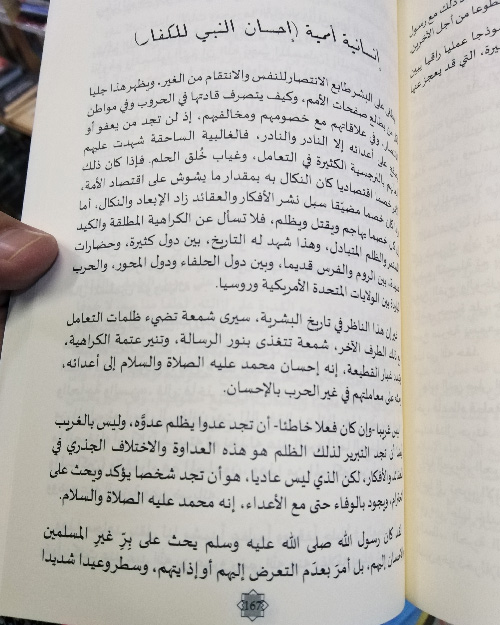 إنسانية أمية (إحسان النبي للكفار)
على البشر طابع الانتصار للنفس والانتقام من الغير، ويظهر هذا جليا
يطالع صفحات الأمم، وكيف يتصرف قادتها في الحروب وفي مواطن
وفي علاقاتهم مع خصومهم ومخالفيهم، إذ لن تجد من يعفو أو
على أعدائه إلا النادر والنادر، فالغالبية الساحقة شهدت عليهم
النرجسية الكثيرة في التعامل، وغياب خُلق الحلم. فإذا كان ذلك
خصما اقتصاديا كان النكال به بمقدار ما يشوش على اقتصاد الأمة،
كان خصما مضيّقا سبل نشر الأفكار والعقائد زاد الإبعاد والنكال، أما
خصما يهاجم ويقتل ويظلم، فلا تسأل عن الكراهية المطلقة والكيد
والظلم المتبادل، وهذا شهد له التاريخ، بين دول كثيرة، وحضارات
بين الروم والفرس قديما، وبين دول الحلفاء ودول المحور، والحرب
بين الولايات المتحدة الأمريكية وروسيا.
هذا الناظر في تاريخ البشرية، سيرى شمعة تضيء ظلمات التعامل
الطرف الآخر، شمعة تتغذى بنور الرسالة، وتنير عتمة الكراهية،
غبار القطيعة، إنه إحسان محمد عليه الصلاة والسلام إلى أعدائه،
على معاملتهم في غير الحرب بالإحسان.
غريبا -وإن كان فعلا خاطئا- أن تجد عدوا يظلم عدوَّه، وليس بالغريب
أن تجد التبرير لذلك الظلم هو هذه العداوة والاختلاف الجذري في
والأفكار، لكن الذي ليس عاديا، هو أن تجد شخصا يؤكد ويحث على
ويجود بالوفاء حتى مع الأعداء، إنه محمد عليه الصلاة والسلام.
كان رسول الله صلى الله عليه وسلم يحث على بِرِّ غير المسلمين
إليهم، بل أمرَ بعدَم التعرض إليهم أو إذايتهم، وسطر وعيدا شديدا
167